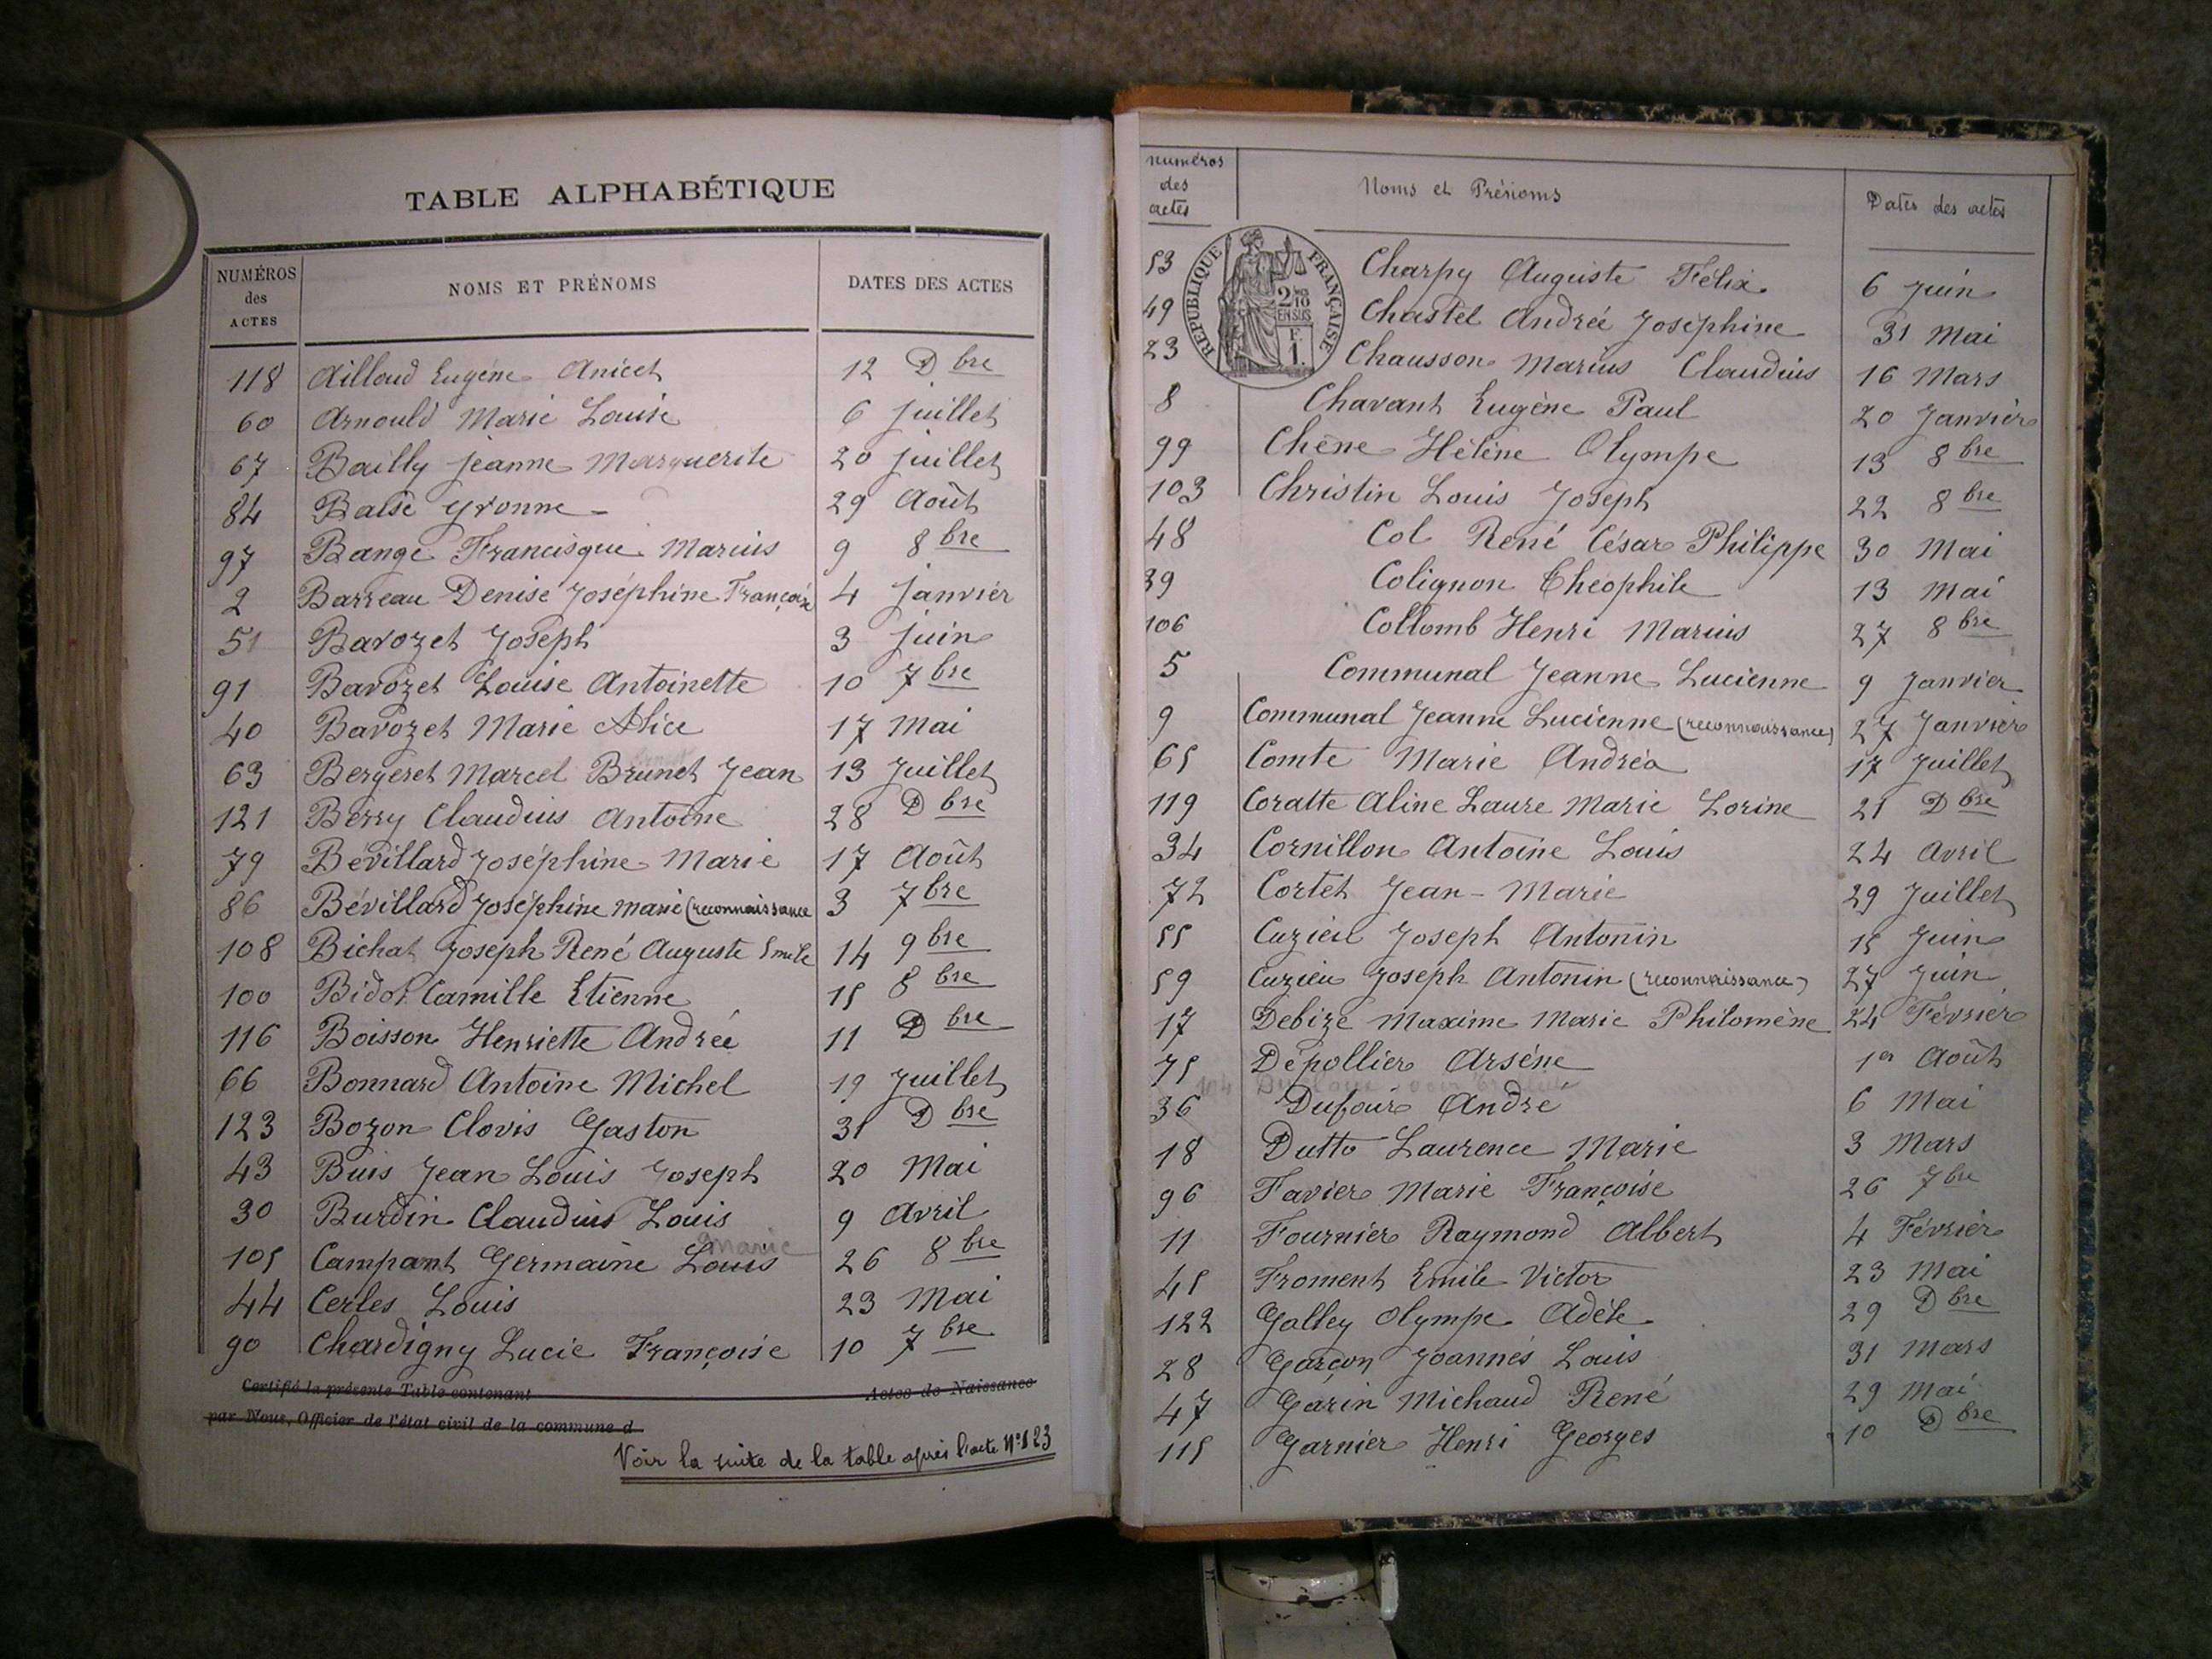 TABLE ALPHABÉTIQUE
NUMÉROS des ACTES NOMS ET PRÉNOMS DATES DES ACTES
118 Aillaud Eugène Anicet 12 Dbre
60 Arnould Marie Louise 6 Juillet
67 Bailly Jeanne Marguerite 20 Juillet
84 Balse Yvonne 29 Août
97 Bange Francisque Marius 9 8bre
2 Barreau Denise Joséphine Françoise 4 Janvier
51 Bavozet Joseph 3 Juin
91 Bavozet Louise Antoinette 10 7bre
40 Bavozet Marie Alice 17 Mai
63 Bergeret Marcel Brunet Jean 13 Juillet
121 Berry Claudius Antoine 28 Dbre
79 Bévillard Joséphine Marie 17 Août
86 Bévillard Joséphine Marie (reconnaissance 3 7bre
108 Bichat Joseph René Auguste Emile 14 9bre
100 Bidot Camille Etienne 15 8bre
116 Boisson Henriette Andrée 11 Dbre
66 Bonnard Antoine Michel 19 Juillet
123 Bozon Clovis Gaston 31 Dbre
43 Buis Jean Louis Joseph 20 Mai
30 Burdin Claudius Louis 9 Avril
Marie
105 Campant Germaine Louis 26 8bre
44 Cerles Louis 23 Mai
90 Chardigny Lucie Françoise 10 7bre
Certifié la présente Table contenant Actes de Naissance
par Nous, Officier de l'état civil de la commune d
Voir la suite de la table après l'acte N°123
numéros des actes Noms et Prénoms Dates des actes
RÉPUBLIQUE FRANÇAISE
2/10 EN SUS
F. 1.
53 Charpy Auguste Félix 6 Juin
49 Chastel Andrée Joséphine 31 Mai
23 Chausson Marius Claudius 16 Mars
8 Chavant Eugène Paul 20 Janvier
99 Chêne Hélène Olympe 13 8bre
103 Christin Louis Joseph 22 8bre
48 Col René César Philippe 30 Mai
39 Colignon Théophile 13 Mai
106 Collomb Henri Marius 27 8bre
5 Communal Jeanne Lucienne 9 Janvier
9 Communal Jeanne Lucienne (reconnaissance) 27 Janvier
65 Comte Marie Andréa 17 Juillet
119 Coratte Aline Laure Marie Lorine 21 Dbre
34 Cornillon Antoine Louis 24 Avril
72 Cortet Jean-Marie 29 Juillet
55 Cuzieu Joseph Antonin 15 Juin
59 Cuzieu Joseph Antonin (reconnaissance) 27 Juin
17 Debize Maxime Marie Philomène 24 Février
75 Dépollier Arsène 1er Août
36 Dufour André 6 Mai
18 Dutto Laurence Marie 3 Mars
96 Favier Marie Françoise 26 7bre
11 Fournier Raymond Albert 4 Février
45 Froment Emile Victor 23 Mai
122 Galley Olympe Adèle 29 Dbre
28 Garçon Joannès Louis 31 Mars
47 Garin Michaud René 29 Mai
115 Garnier Henri Georges 10 Dbre